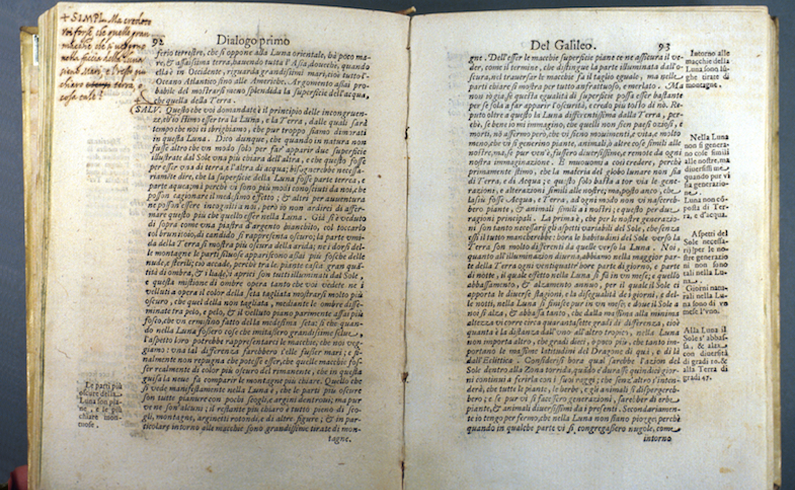 + SIMPL. Ma credete
voi forse, che quelle gran
macchie che si veggono
nella faccia della Luna
siano Mari, e'l resto più
chiaro terra, o
cosa tale?
92 Dialogo primo
ferio terrestre, che si oppone alla Luna orientale, hà poco ma-
re, & assaissima terra, hauendo tutta l'Asia, doue che, quando
ella è in Occidente, riguarda grandissimi mari, cio è tutto l'-
Oceano Atlantico sino alle Americhe: Argomento assai pro-
babile del mostrarsi meno splendida la superficie dell'acqua,
che quella della Terra.
SALV. Questo che voi domandate è il principio delle incongruen-
ze, ch'io stimo esser tra la Luna, e la Terra, dalle quali sarà
tempo che noi ci sbrighiamo, che pur troppo siamo dimorati
in questa Luna. Dico dunque, che quando in natura non
fusse altro che vn modo solo per far apparir due superficie
illustrate dal Sole vna più chiara dell'altra, e che questo fosse
per esser vna di terra, e l'altra di acqua; bisognerebbe necessa-
riamẽte dire, che la superficie della Luna fosse parte terrea, e
parte aquea; mà perche vi sono più modi conosciuti da noi, che
posson cagionare il medesimo effetto, & altri per auuentura
ne posson'essere incogniti a noi, però io non ardirei di affer-
mare questo più che quello esser nella Luna. Già si è veduto
di sopra come vna piastra d'argento bianchito, col toccarlo
col brunitoio, di candido si rappresenta oscuro; la parte vmi-
da della Terra si mostra più oscura della arida; ne i dorsi del-
le montagne le parti siluose appariscono assai più fosche delle
nude, e sterili; ciò accade, perche trà le piante casca gran quã-
tità di ombra, & i luoghi aprici son tutti illuminati dal Sole,
e questa mistione di ombre opera tanto che voi vedete ne i
velluti a opera il color della seta tagliata mostrarsi molto più
oscuro, che quel della non tagliata, mediante le ombre disse-
minate tra pelo, e pelo, & il velluto piano parimente assai più
fosco, che vn ermisino fatto della medesima seta; sì che quan-
do nella Luna fossero cose che imitassero grandissime selue,
l'aspetto loro potrebbe rappresentarci le macchie, che noi veg-
giamo: vna tal differenza farebbero s'elle fusser mari; e fi-
nalmente non repugna che potesse esser, che quelle macchie fos-
ser realmente di color più oscuro del rimanente, che in questa
guisa la neue fa comparir le montagne più chiare. Quello che
si vede manifestamente nella Luna è, che le parti più oscure
son tutte pianure con pochi scogli, e argini dentroui; ma pur
ve ne son'alcuni; il restante più chiaro è tutto pieno di sco-
gli, montagne, arginetti rotondi, e di altre figure; & in par-
ticolare intorno alle macchie sono grandissime tirate di mon-
tagne.
Le parti più
oscure della
Luna son pia-
ne, e le più
chiare mon-
tuose.
Del Galileo. 93
gne. Dell'esser le macchie superficie piane ce ne assicura il ve-
der, come il termine, che distingue la parte illuminata dall'o-
scura, nel trauersar le macchie fa il taglio eguale, ma nelle
parti chiare si mostra per tutto anfrattuoso, e merlato. Ma
non sò già se questa egualità di superficie possa esser bastante
per se sola a far apparir l'oscurità, e credo più tosto di nò. Re-
puto oltre a questo la Luna differentissima dalla Terra, per-
che, se bene io mi immagino, che quelli non sien paesi oziosi, e
morti, nò affermo però, che vi sieno mouimenti, e vita, e molto
meno, che vi si generino piante, animali, ò altre cose simili alle
nostre; ma, se pur ve n'è, fussero diuersissime, e remote da ogni
nostra immaginazione. E muouomi a così credere, perche
primamente stimo, che la materia del globo lunare non sia
di Terra, e di Acqua; e questo solo basta a tor via le gene-
razioni, e alterazioni simili alle nostre; ma, posto anco, che
lassù fosse Acqua, e Terra, ad ogni modo non vi nascereb-
bero piante, & animali simili a i nostri; e questo per due
ragioni principali. La prima è, che per le nostre generazio-
ni son tanto necessarij gli aspetti variabili del Sole, che senza
essi il tutto mancherebbe: hora le habitudini del Sole verso la
Terra son molto differenti da quelle verso la Luna. Noi,
quanto all'illuminazion diurna, abbiamo nella maggior par-
te della Terra ogni ventiquattr'hore parte di giorno, e parte
di notte, il quale effetto nella Luna si fà in vn mese; e quello
abbassamento, & alzamento annuo, per il quale il Sole ci
apporta le diuerse stagioni, e la disegualità de i giorni, e del-
le notti, nella Luna si finisce pur in vn mese; e doue il Sole a
noi si alza, & abbassa tanto, che dalla massima alla minima
altezza vi corre circa quarantasette gradi di differenza, cioè
quanta è la distanza dall'vno all'altro tropico, nella Luna
non importa altro, che gradi dieci, ò poco più, che tanto im-
portano le massime latitudini del Dragone di quà, e di là
dall'Eclittica. Considerisi hora qual sarebbe l'azion del
Sole dentro alla Zona torrida, quãdo e' durasse quindici gior-
ni continui a ferirla con i suoi raggi; che senz'altro s'inten-
derà, che tutte le piante, e le herbe, e gli animali si dispergereb-
bero; e se pur vi si facessero generazioni, sarebber di erbe,
piante, & animali diuersissimi da i presenti. Secondariamen-
te io tengo per fermo, che nella Luna non siano piogge; perche
quando in qualche parte vi si congregassero nugole, come
intorno
Intorno alle
macchie della
Luna sono lu-
ghe tirate di
montagne.
Nella Luna
non si genera-
no cose simili
alle nostre, ma
diuersissime
quando pur vi
sia generazio-
ne.
Luna non cõ-
posta di Ter-
ra, e d'acqua.
Aspetti del
Sole necessa-
rij per le no-
stre generazio-
ni non sono
tali nella Lu-
na.
Giorni natu-
rali nella Lu-
na sono di vn
mese l'vno.
Alla Luna il
Sole s'abbas-
sa, & alza
con diuersità
di gradi 10. &
alla Terra di
gradi 47.